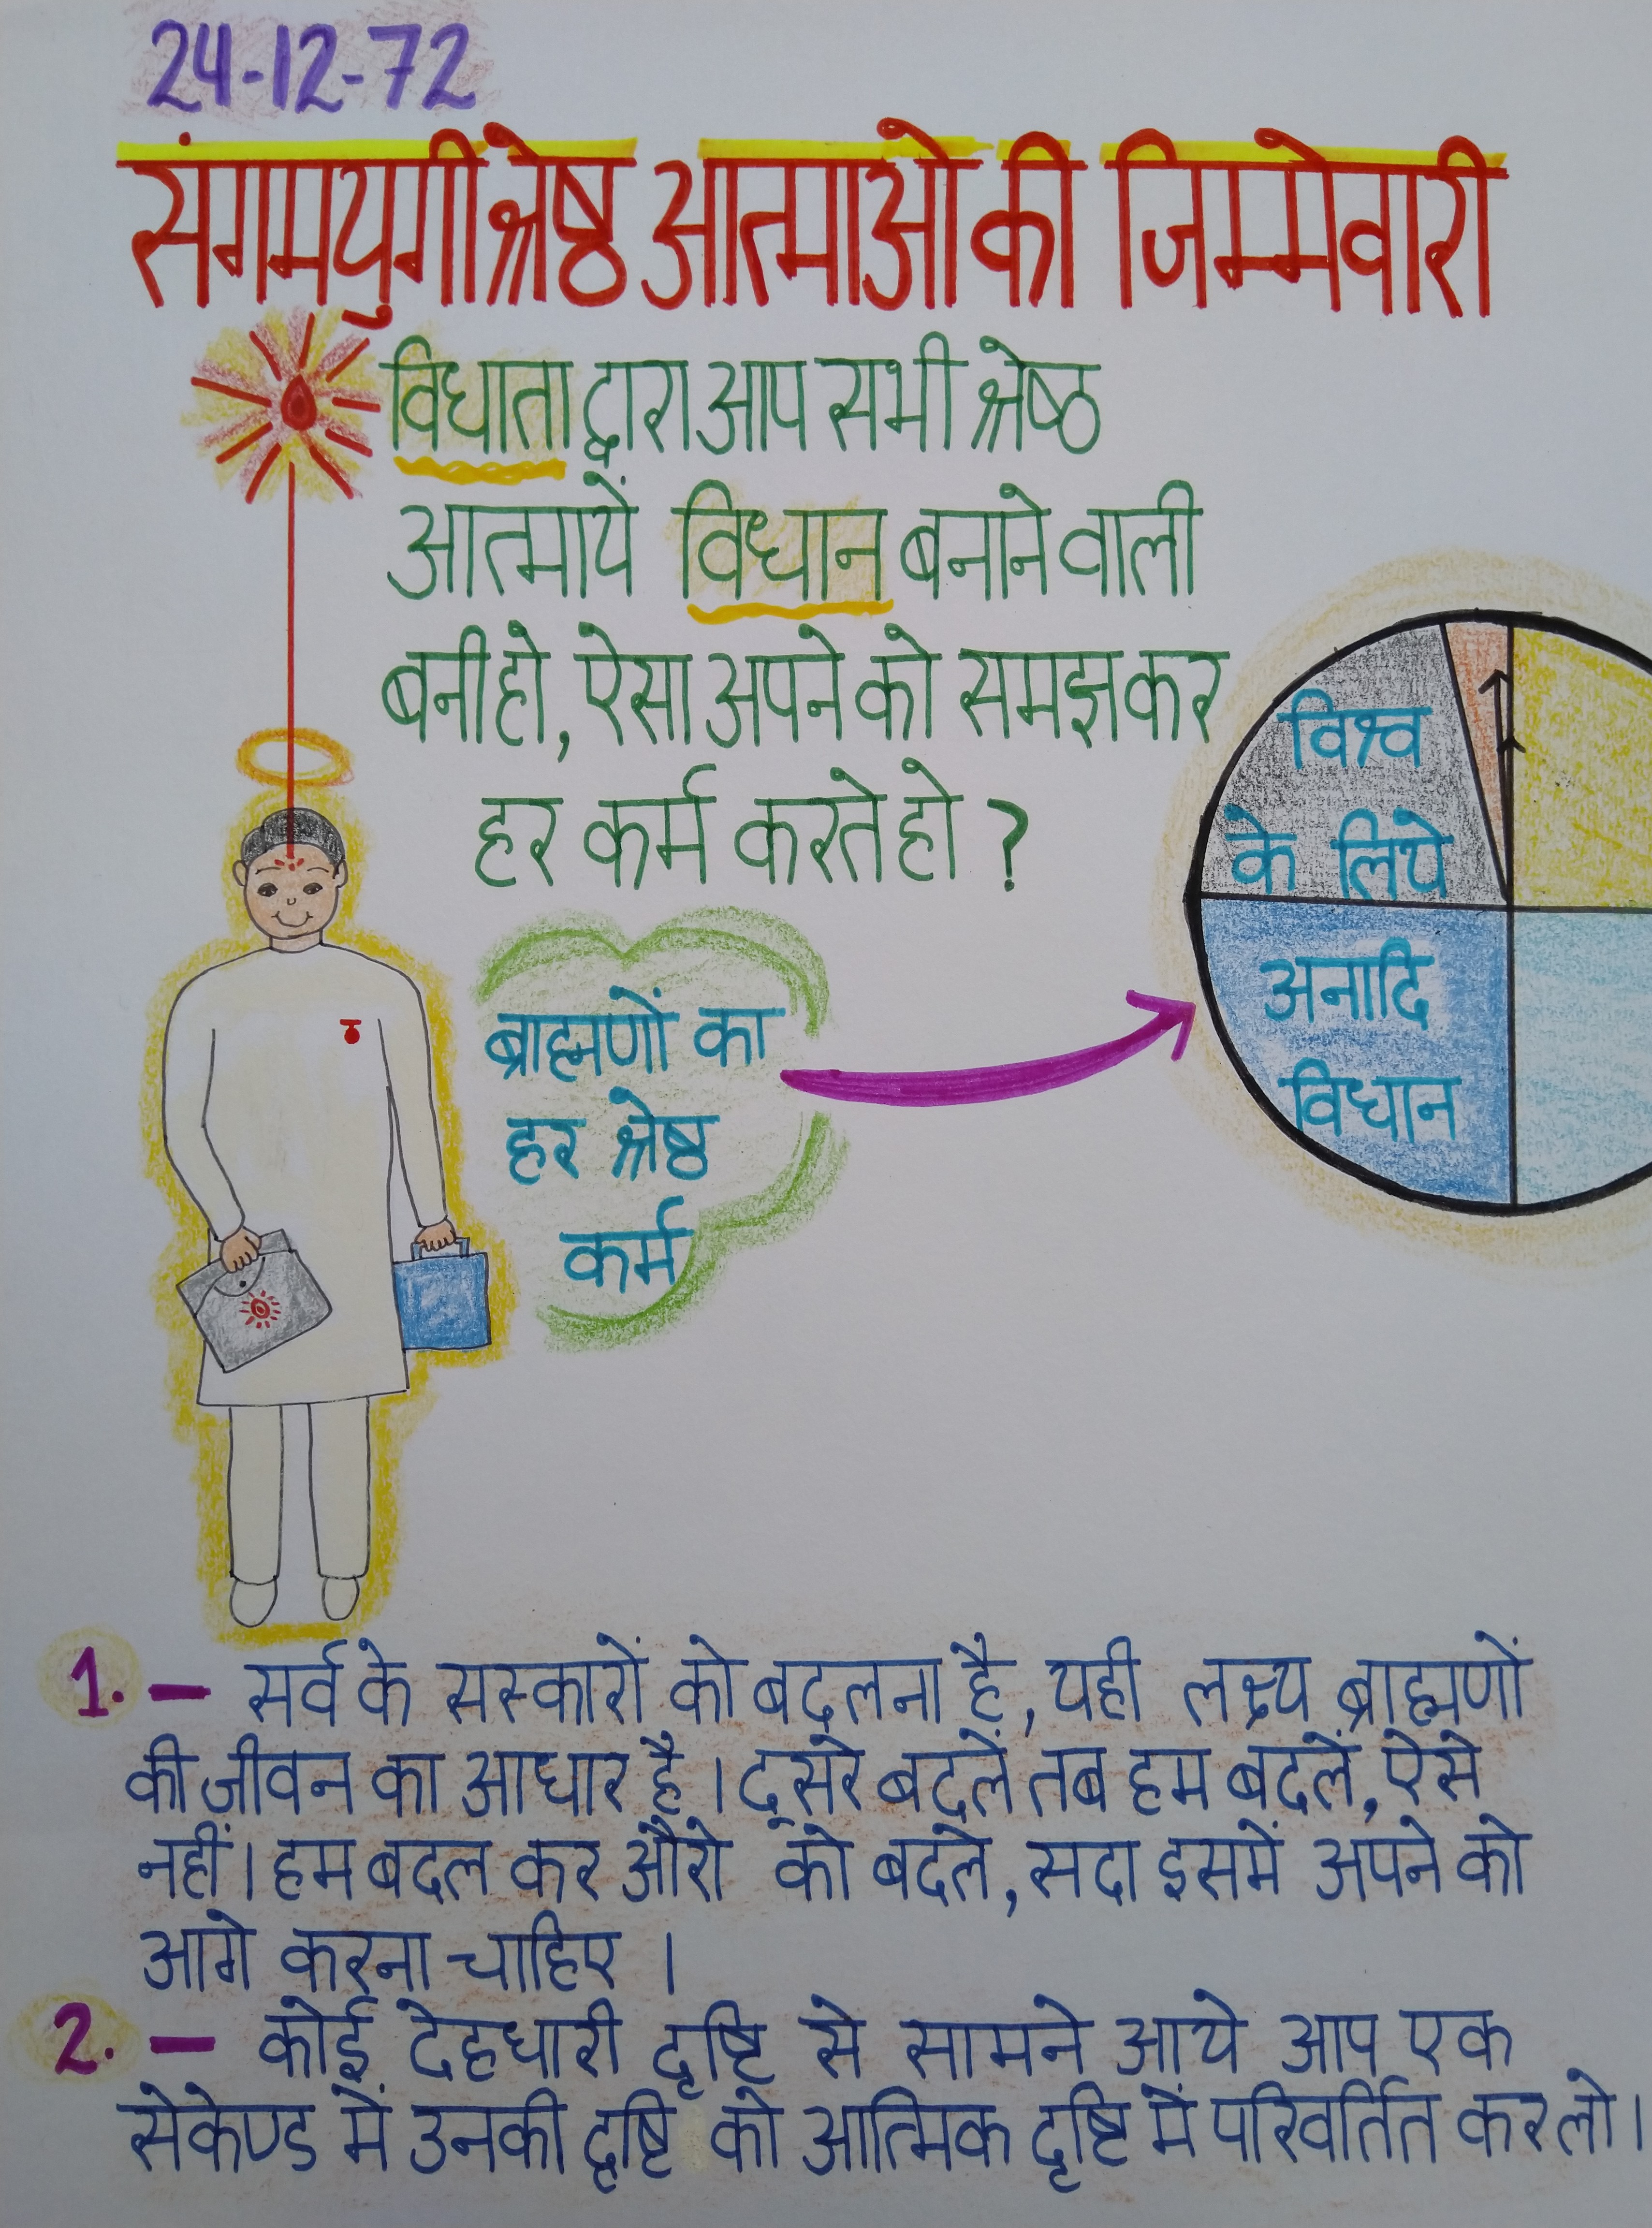 24-12-72
संगमयुगी श्रेष्ठ आत्माओ की जिम्मेवारी
विधाता द्वारा आप सभी श्रेष्ठ
आत्मायें विधान बनाने वाली
बनी हो, ऐसा अपने को समझ कर
हर कर्म करते हो ?
विश्व
के लिये
अनादि
विधान
ब्राह्मणों का
हर श्रेष्ठ
कर्म
1. – सर्व के सस्कारों को बदलना है, यही लक्ष्य ब्राह्मणों
की जीवन का आधार है । दूसरे बदलें तब हम बदलें, ऐसे
नहीं । हम बदल कर औरो को बदलें, सदा इसमें अपने को
आगे करना चाहिए ।
2. – कोई देहधारी दृष्टि से सामने आये आप एक
सेकेण्ड में उनकी दृष्टि को आत्मिक दृष्टि में परिवर्तित कर लो ।